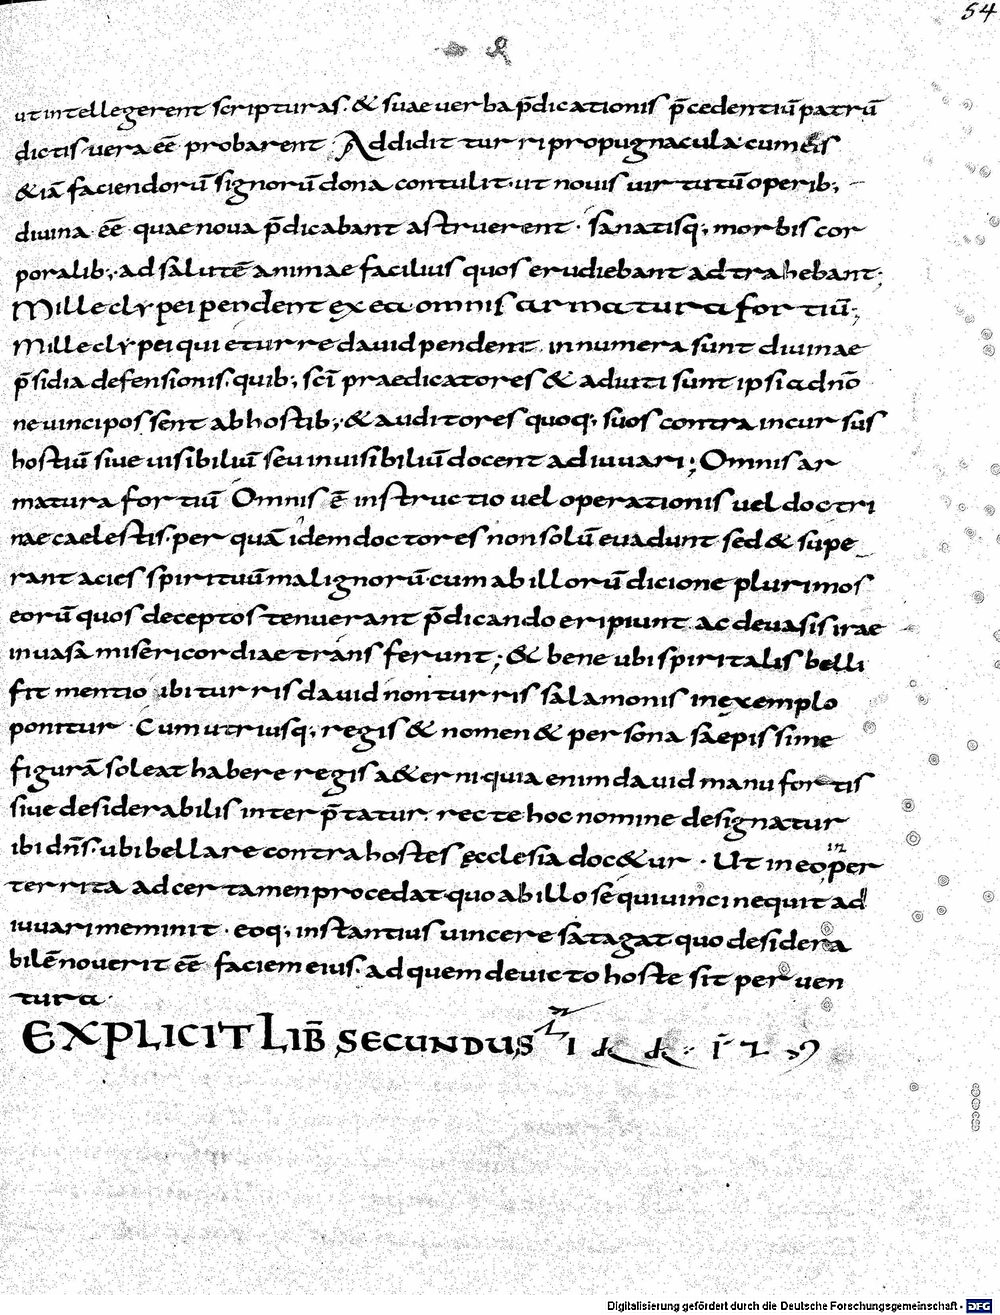 54
ut intellegerent scripturas. & suae uerba p̄dicationis p̄cedentiū patrū
dictis uera eē probarent Addidit turri propugnacula cum eis
&iā faciendorū signorū dona contulit. ut nouis uirtutū operib;
diuina eē quae noua p̄dicabant astruerent. sanatisq; morbis cor
poralib; ad salutē animae facilius quos erudiebant adtrahebant;
Mille clypei pendent ex ea omnis armatura fortiū;
Mille clypei qui e turre dauid pendent. innumera sunt diuinae
p̄sidia defensionis. quib; sc̄i praedicatores & adiuti sunt ipsi a dn̄o
ne uinci possent ab hostib; & auditores quoq; suos contra incursus
hostiū siue uisibiliū seu inuisibiliū docent adiuuari; Omnis ar
matura fortiū Omnis ē instructio uel operationis uel doctri
nae caelestis. per quā idem doctores non solū euadunt sed & supe
rant acies spirituū malignorū. cum ab illorū dicione plurimos
eorū quos deceptos tenuerant p̄dicando eripiunt. ac de uasis irae
in uasa misericordiae transferunt; & bene ubi spiritalis belli
fit mentio ibi turris dauid non turris salamonis in exemplo
ponitur. Cum utriusq; regis & nomen & persona saepissime
figurā soleat habere regis a&erni quia enim dauid manu fortis
siue desiderabilis interp̄tatur. recte hoc nomine designatur
ibi dn̄s. ubi bellare contra hostes ecclesia doc&ur. Ut in eo inper
territa ad certamen procedat quo ab illo se qui uinci nequit ad
iuuari meminit. eoq; instantius uincere satagat quo desidera
bilē nouerit eē faciem eius. ad quem deuicto hoste sit peruen
tura.
EXPLICIT LIB̄ SECUNDUS
Digitalisierung gefördert durch die Deutsche Forschungsgemeinschaft - DFG